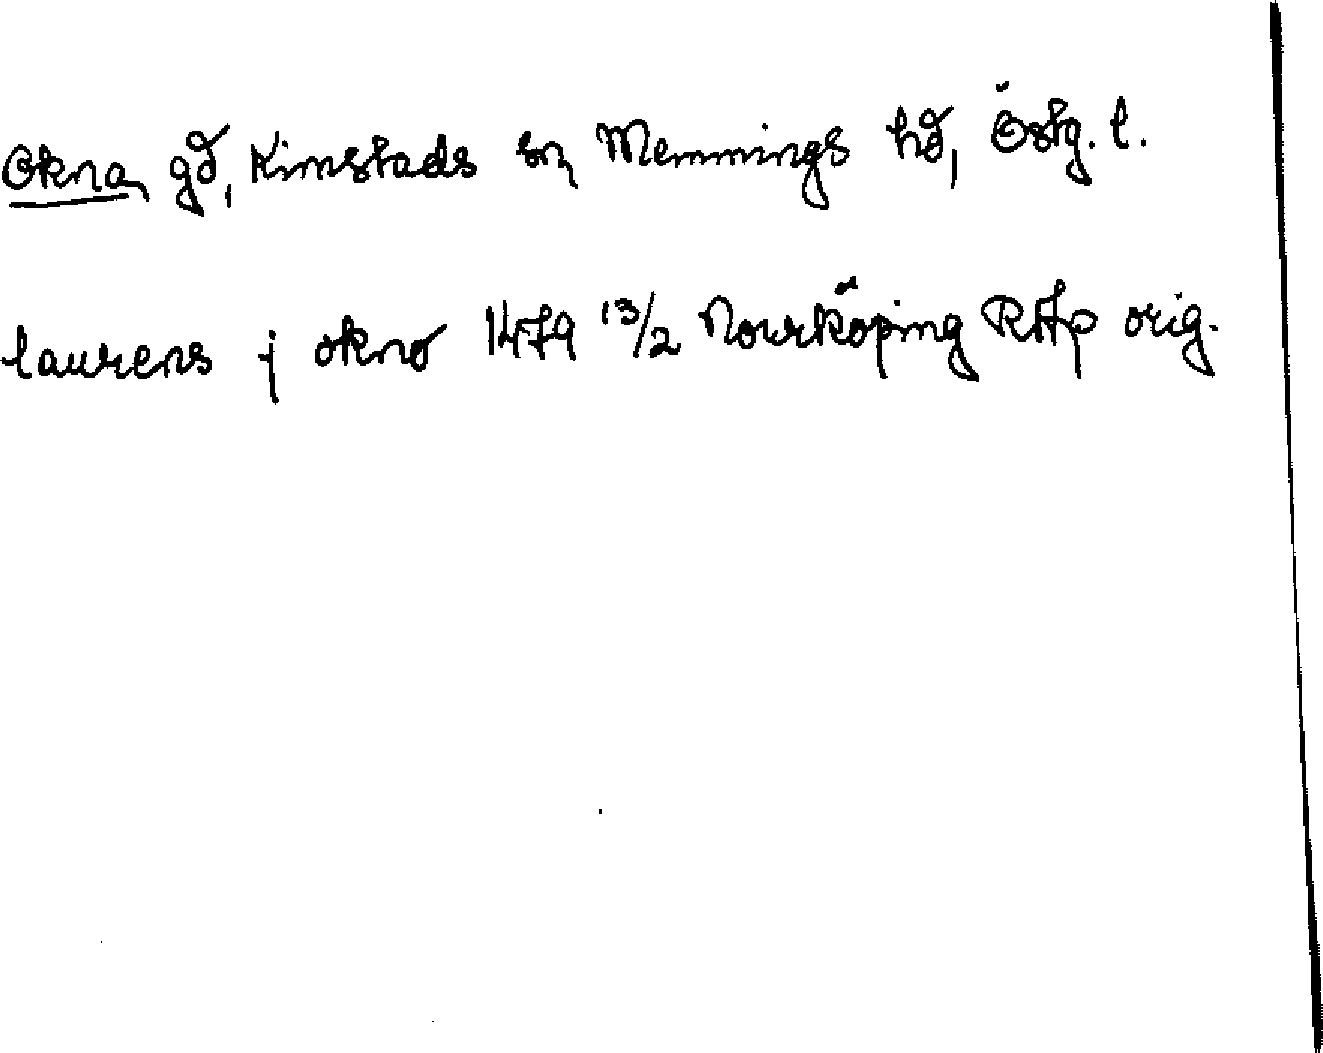 Okna gd, Kimstads sn Memmings hd, Östg. l.
laurens j okno 1479 13/2 Nowrköping RAp orig.